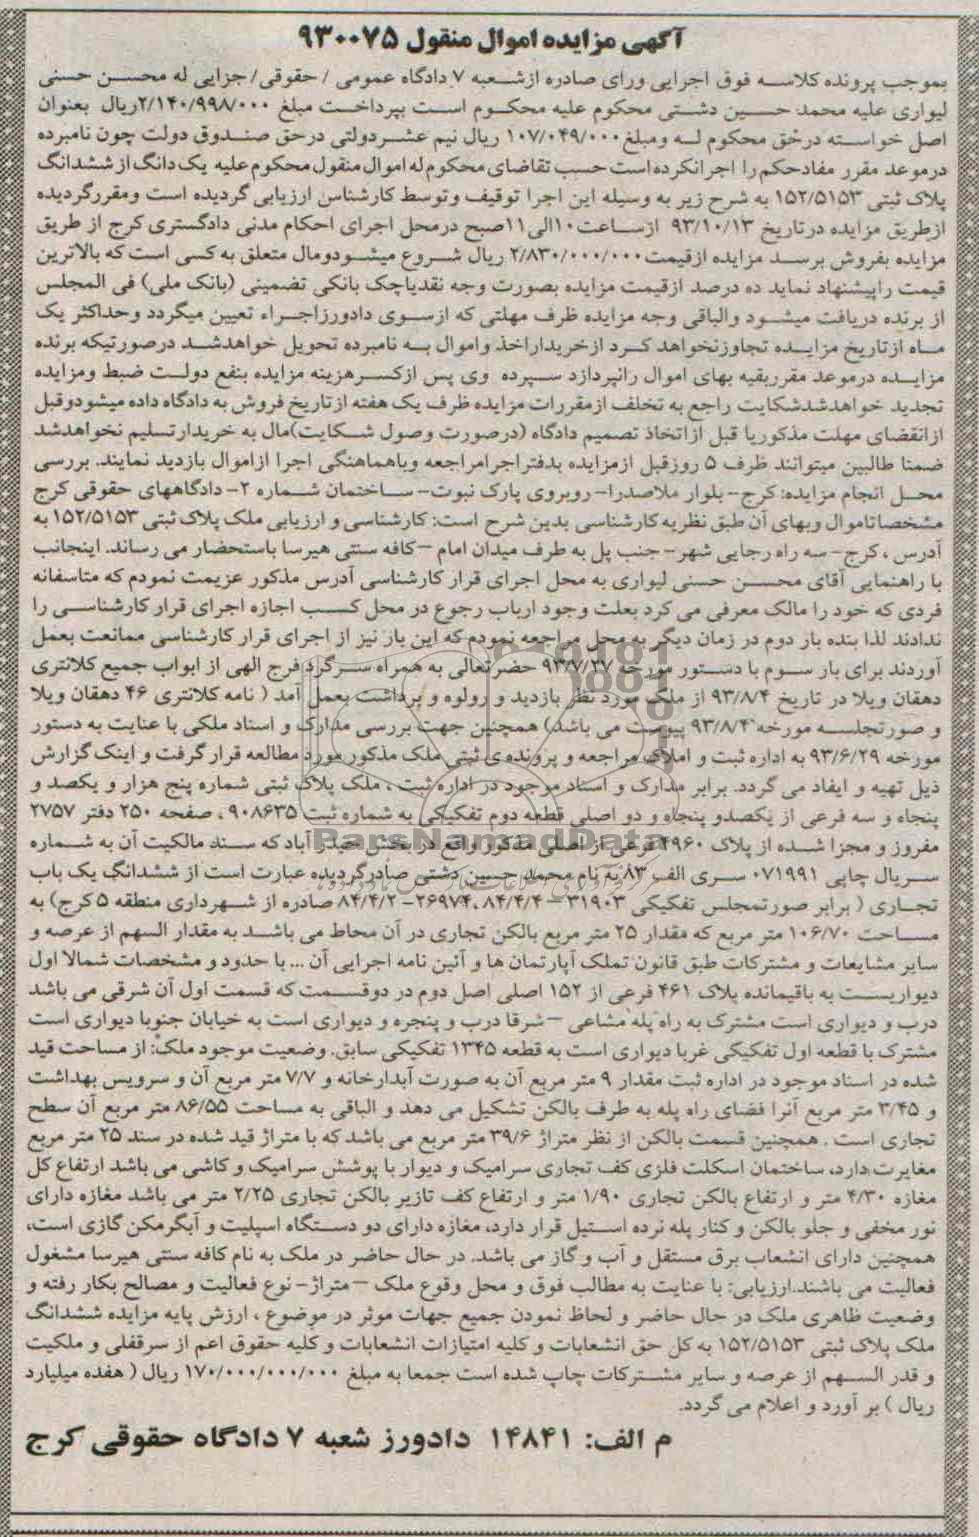 آگهی مزایده اموال منقول ۹۳۰۰۷۵
بموجب پرونده کلاسه فوق اجرایی ورای صادره ازشعبه ۷ دادگاه عمومی / حقوقی/جزایی له محسن حسنی
لیواری علیه محمد حسین دشتی محکوم علیه محکوم است بپرداخت مبلغ ۲/۱۴۰/۹۹۸/۰۰۰ریال بعنوان
اصل خواسته درحق محکوم له ومبلغ ۱۰۷/۰۴۹/۰۰۰ ریال نیم عشردولتی درحق صندوق دولت چون نامبرده
درموعد مقرر مفادحکم را اجرانکرده است حسب تقاضای محکوم له اموال منقول محکوم علیه یک دانگ از ششدانگ
پلاک ثبتی ۱۵۲/۵۱۵۳ به شرح زیر به وسیله این اجرا توقیف وتوسط کارشناس ارزیابی گردیده است ومقررگردیده
ازطریق مزایده درتاریخ ۹۳/۱۰/۱۳ ازساعت ۱۰الی ۱۱صبح درمحل اجرای احکام مدنی دادگستری کرج از طریق
مزایده بفروش برسد مزایده ازقیمت ۲/۸۳۰/۰۰۰/۰۰۰ ریال شروع میشودومال متعلق به کسی است که بالاترین
قیمت راپیشنهاد نماید ده درصد ازقیمت مزایده بصورت وجه نقدیاچک بانکی تضمینی (بانک ملی) فی المجلس
از برنده دریافت میشود والباقی وجه مزایده ظرف مهلتی که ازسوی دادورزاجراء تعیین میگردد وحداکثر یک
ماه ازتاریخ مزایده تجاوزنخواهد کرد ازخریداراخذ واموال به نامبرده تحویل خواهدشد درصورتیکه برنده
مزایده درموعد مقرربقیه بهای اموال رانپردازد سپرده وی پس ازکسرهزینه مزایده بنفع دولت ضبط ومزایده
تجدید خواهدشدشکایت راجع به تخلف ازمقررات مزایده ظرف یک هفته ازتاریخ فروش به دادگاه داده میشودوقبل
ازانقضای مهلت مذکوریا قبل ازاتخاذ تصمیم دادگاه (درصورت وصول شکایت)مال به خریدارتسلیم نخواهدشد
ضمنا طالبین میتوانند ظرف ۵ روزقبل ازمزایده بدفتراجرامراجعه وباهماهنگی اجرا ازاموال بازدید نمایند. بررسی
محل انجام مزایده: کرج- بلوار ملاصدرا- روبروی پارک نبوت- ساختمان شماره ۲- دادگاههای حقوقی کرج
مشخصاتاموال وبهای آن طبق نظریه کارشناسی بدین شرح است: کارشناسی و ارزیابی ملک پلاک ثبتی ۱۵۲/۵۱۵۳ به
آدرس ، کرج- سه راه رجایی شهر- جنب پل به طرف میدان امام –کافه سنتی هیرسا باستحضار می رساند. اینجانب
با راهنمایی آقای محسن حسنی لیواری به محل اجرای قرار کارشناسی آدرس مذکور عزیمت نمودم که متاسفانه
فردی که خود را مالک معرفی می کرد بعلت وجود ارباب رجوع در محل کسب اجازه اجرای قرار کارشناسی را
ندادند لذا بنده بار دوم در زمان دیگر به محل مراجعه نمودم که این بار نیز از اجرای قرار کارشناسی ممانعت بعمل
آوردند برای بار سوم با دستور مورخه ۹۳/۷/۲۷ حضرتعالی به همراه سرگرد فرج الهی از ابواب جمیع کلانتری
دهقان ویلا در تاریخ ۹۳/۸/۴ از ملک مورد نظر بازدید و رولوه و برداشت بعمل آمد ( نامه کلانتری ۴۶ دهقان ویلا
و صورتجلسه مورخه ۹۳/۸/۴ پیوست می باشد) همچنین جهت بررسی مدارک و اسناد ملکی با عنایت به دستور
مورخه ۹۳/۶/۲۹ به اداره ثبت و املاک مراجعه و پرونده ی ثبتی ملک مذکور مورد مطالعه قرار گرفت و اینک گزارش
ذیل تهیه و ایفاد می گردد. برابر مدارک و اسناد موجود در اداره ثبت ، ملک پلاک ثبتی شماره پنج هزار و یکصد و
پنجاه و سه فرعی از یکصدو پنجاه و دو اصلی قطعه دوم تفکیکی به شماره ثبت ۹۰۸۶۳۵ ، صفحه ۲۵۰ دفتر ۲۷۵۷
مفروز و مجزا شده از پلاک ۴۹۶۰ فرعی از اصلی مذکور واقع در بخش حیدر آباد که سند مالکیت آن به شماره
سریال چاپی ۰۷۱۹۹۱ سری الف ۸۳ به نام محمد حسین دشتی صادرگردیده عبارت است از ششدانگ یک باب
تجاری ( برابر صورتمجلس تفکیکی ۳۱۹۰۳–۸۴/۴/۴ ،۲۶۹۷۴- ۸۴/۴/۲ صادره از شهرداری منطقه ۵ کرج) به
مساحت ۱۰۶/۷۰ متر مربع که مقدار ۲۵ متر مربع بالکن تجاری در آن محاط می باشد به مقدار السهم از عرصه و
سایر مشایعات و مشترکات طبق قانون تملک آپارتمان ها و آئین نامه اجرایی آن ... با حدود و مشخصات شمالا اول
دیواریست به باقیمانده پلاک ۴۶۱ فرعی از ۱۵۲ اصلی اصل دوم در دوقسمت که قسمت اول آن شرقی می باشد
درب و دیواری است مشترک به راه پله مشاعی –شرقا درب و پنجره و دیواری است به خیابان جنوبا دیواری است
مشترک با قطعه اول تفکیکی غربا دیواری است به قطعه ۱۳۴۵ تفکیکی سابق. وضعیت موجود ملک: از مساحت قید
شده در اسناد موجود در اداره ثبت مقدار ۹ متر مربع آن به صورت آبدارخانه و ۷/۷ متر مربع آن و سرویس بهداشت
و ۳/۴۵ متر مربع آنرا فضای راه پله به طرف بالکن تشکیل می دهد و الباقی به مساحت ۸۶/۵۵ متر مربع آن سطح
تجاری است . همچنین قسمت بالکن از نظر متراژ ۳۹/۶ متر مربع می باشد که با متراژ قید شده در سند ۲۵ متر مربع
مغایرت دارد، ساختمان اسکلت فلزی کف تجاری سرامیک و دیوار با پوشش سرامیک و کاشی می باشد ارتفاع کل
مغازه ۴/۳۰ متر و ارتفاع بالکن تجاری ۱/۹۰ متر و ارتفاع کف تازیر بالکن تجاری ۲/۲۵ متر می باشد مغازه دارای
نور مخفی و جلو بالکن و کنار پله نرده استیل قرار دارد، مغازه دارای دو دستگاه اسپلیت و آبگرمکن گازی است،
همچنین دارای انشعاب برق مستقل و آب و گاز می باشد. در حال حاضر در ملک به نام کافه سنتی هیرسا مشغول
فعالیت می باشند.ارزیابی: با عنایت به مطالب فوق و محل وقوع ملک –متراژ- نوع فعالیت و مصالح بکار رفته و
وضعیت ظاهری ملک در حال حاضر و لحاظ نمودن جمیع جهات موثر در موضوع ، ارزش پایه مزایده ششدانگ
ملک پلاک ثبتی ۱۵۲/۵۱۵۳ به کل حق انشعابات و کلیه امتیازات انشعابات و کلیه حقوق اعم از سرقفلی و ملکیت
و قدر السهم از عرصه و سایر مشترکات چاپ شده است جمعا به مبلغ ۱۷۰/۰۰۰/۰۰۰/۰۰۰ ریال ( هفده میلیارد
ریال ) بر آورد و اعلام می گردد.
م الف: ۱۴۸۴۱ دادورز شعبه ۷ دادگاه حقوقی کرج
ParsNamadData